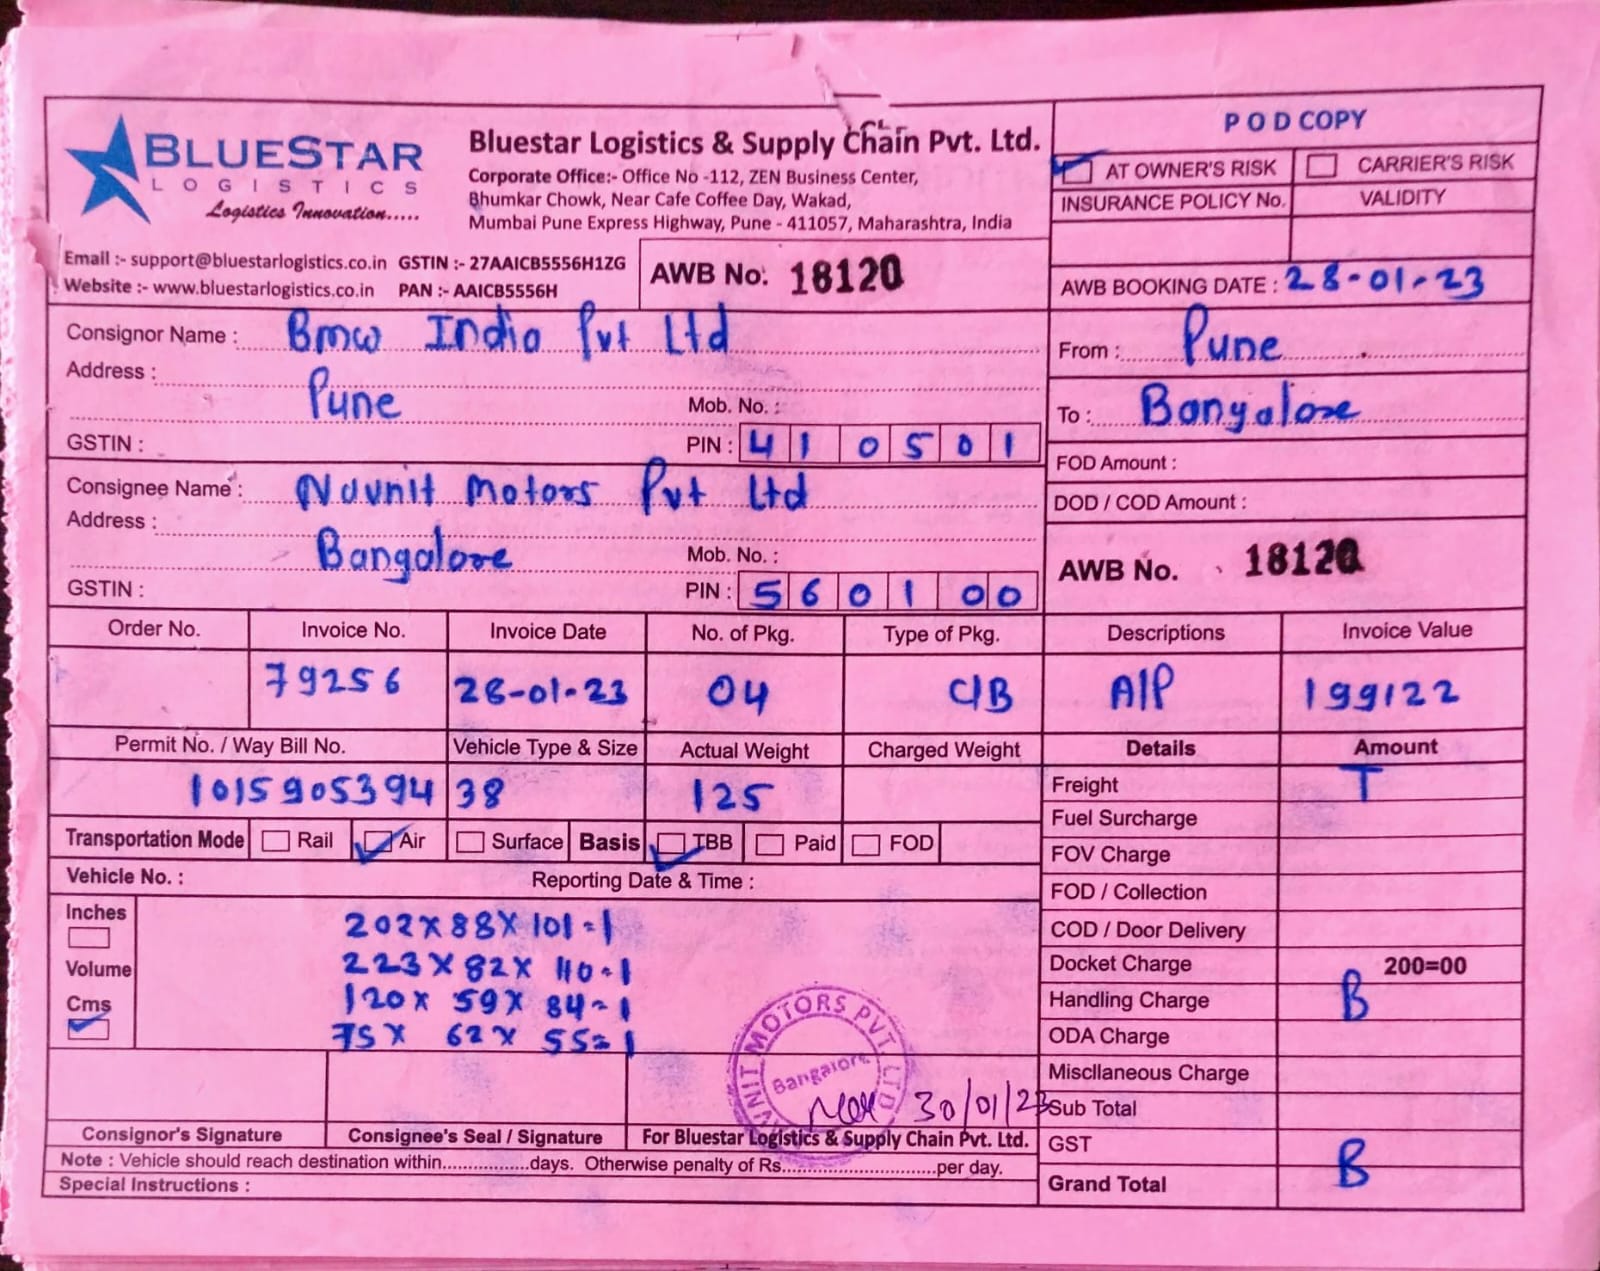 BLUESTAR
LOGISTICS
Logistics Innovation.....
Bluestar Logistics & Supply Chain Pvt. Ltd.
Corporate Office:- Office No -112, ZEN Business Center,
Bhumkar Chowk, Near Cafe Coffee Day, Wakad,
Mumbai Pune Express Highway, Pune - 411057, Maharashtra, India
Email :- support@bluestarlogistics.co.in GSTIN :- 27AAICB5556H1ZG
Website :- www.bluestarlogistics.co.in PAN :- AAICB5556H
AWB No. 18120
POD COPY
AT OWNER'S RISK CARRIER'S RISK
INSURANCE POLICY No. VALIDITY
AWB BOOKING DATE : 28-01-23
Consignor Name : Bmw India Pvt Ltd
Address :
Pune Mob. No. :
GSTIN : PIN : 410501
From : Pune
To : Bangalore
Consignee Name : Navnit Motors Pvt Ltd
Address :
Bangalore Mob. No. :
GSTIN : PIN : 560100
FOD Amount :
DOD / COD Amount :
AWB No. 18120
Order No. Invoice No. Invoice Date No. of Pkg. Type of Pkg. Descriptions Invoice Value
79256 28-01-23 04 C/B A/P 199122
Permit No. / Way Bill No. Vehicle Type & Size Actual Weight Charged Weight Details Amount
1015905394 38 125
Freight T
Fuel Surcharge
FOV Charge
FOD / Collection
COD / Door Delivery
Docket Charge 200=00
Handling Charge B
ODA Charge
Miscllaneous Charge
Sub Total
GST
Grand Total B
Transportation Mode Rail Air Surface Basis TBB Paid FOD
Vehicle No. : Reporting Date & Time :
Inches
Volume
Cms
202x88x101=1
223x82x110=1
120x59x84=1
75x62x55=1
NAVNIT MOTORS PVT. LTD
Bangalore
30/01/23
Consignor's Signature Consignee's Seal / Signature For Bluestar Logistics & Supply Chain Pvt. Ltd.
Note : Vehicle should reach destination within.................days. Otherwise penalty of Rs..............................per day.
Special Instructions :